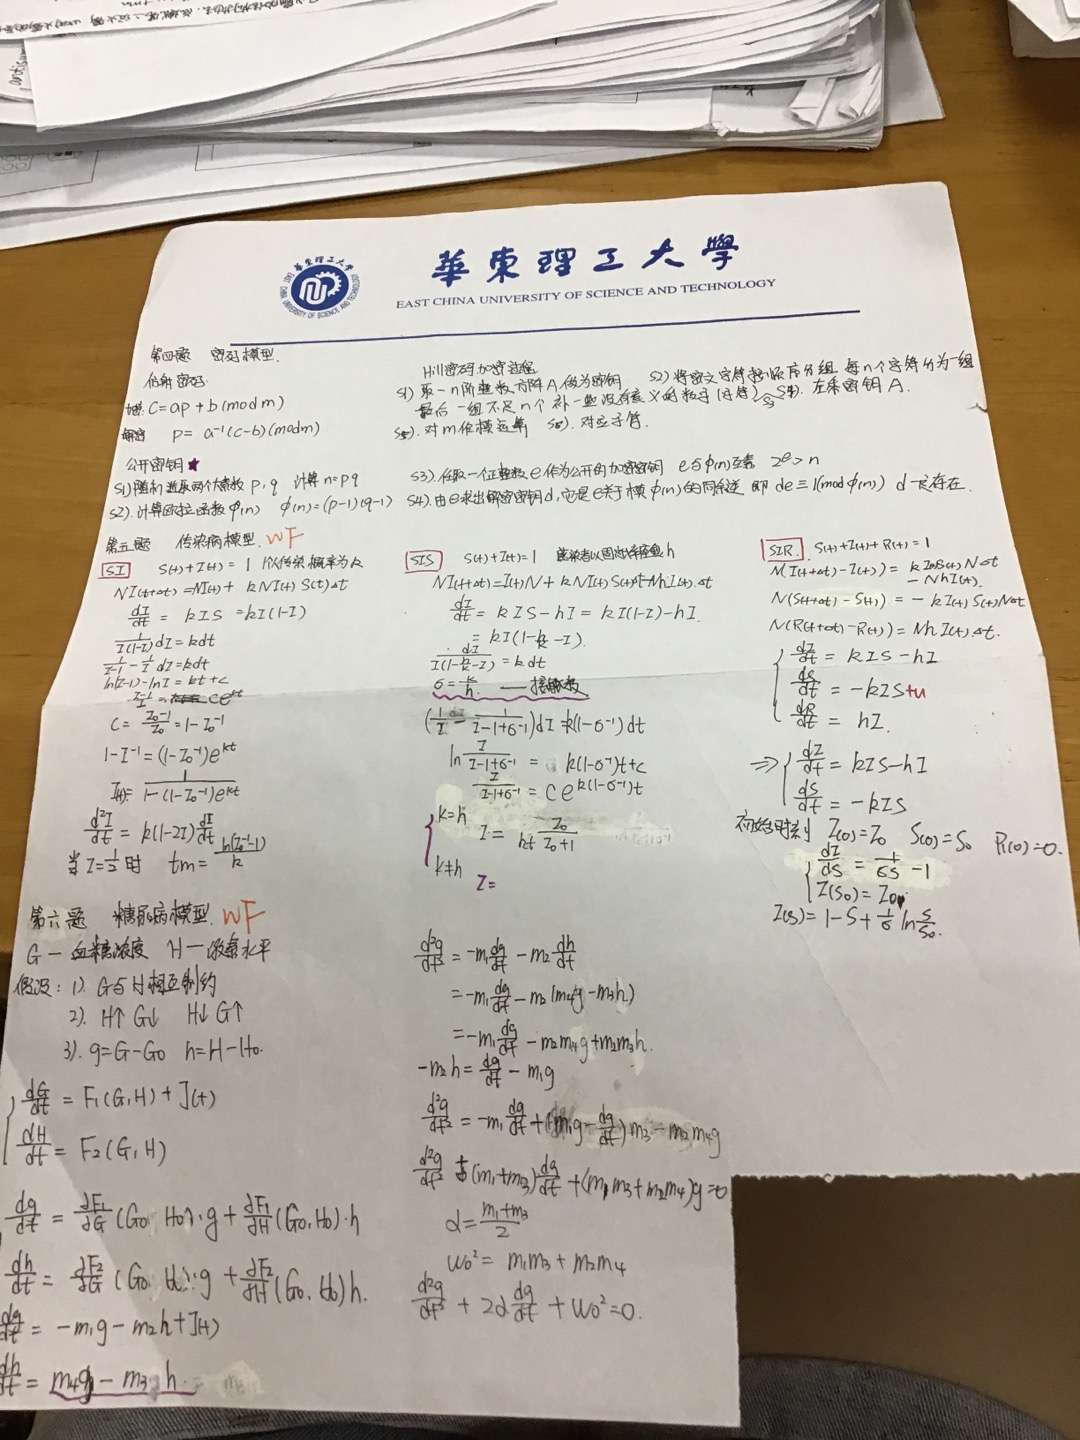 華東理工大學
EAST CHINA UNIVERSITY OF SCIENCE AND TECHNOLOGY
第四题 密码模型.
仿射密码.
加密. C=ap+b(mod m)
解密 P= a⁻¹(c-b)(mod m)
Hill密码加密过程
S1) 取一n阶整数方阵A做为密钥 S2) 将密文字符按顺序分组 每n个字符分为一组
最后一组不足n个 补一些没有意义的数字(字符) 左乘密钥A.
对m作模运算 对应字符.
公开密钥★
S1) 随机选取两个大素数 p, q 计算 n=pq
S2). 计算欧拉函数 φ(n) φ(n)=(p-1)(q-1)
S3). 任取一个正整数e作为公开的加密密钥 e与φ(n)互素 2^e>n
S4). 由e求出解密密钥d, 它是e关于模φ(n)的同余逆 即 de≡1(mod φ(n)) d一定存在.
第五题 传染病模型. WF
SI S(t)+I(t)=1 传染概率为k
NI(t+Δt)=NI(t)+kNI(t)S(t)Δt
dI/dt = kIS =kI(1-I)
1/I(1-I) dI=kdt
1/I-1 - 1/I dI=kdt
ln(I-1)-lnI=kt+c
ce^kt
C= I₀-1/I₀ =1-I₀⁻¹
1-I⁻¹=(1-I₀⁻¹)e^kt
I(t)= 1/1-(1-I₀⁻¹)e^kt
d²I/dt = k(1-2I) dI/dt
当I=1/2时 tm= ln(I₀⁻¹-1)/k
SIS S(t)+I(t)=1 h
NI(t+Δt)=I(t)N+kNI(t)S(t)Δt-NhI(t).Δt
dI/dt = kIS-hI = kI(1-I)-hI.
= kI(1-h/k-I).
dI/I(1-h/k-I) =kdt
σ=k/h. —— 接触数
(1/I - 1/I-1+σ⁻¹)dI=k(1-σ⁻¹)dt
ln I/I-1+σ⁻¹ = k(1-σ⁻¹)t+c
I/I-1+σ⁻¹ = Ce^k(1-σ⁻¹)t
k=h I= I₀/kt I₀+1
k≠h I=
SIR. S(t)+I(t)+R(t)=1
N(I(t+Δt)-I(t))= kI(t)S(t)NΔt
-NhI(t).
N(S(t+Δt)-S(t))=-kI(t)S(t)NΔt
N(R(t+Δt)-R(t))=NhI(t)Δt.
dI/dt = kIS-hI
dS/dt = -kIS+u
dR/dt = hI.
⇒ dI/dt = kIS-hI
dS/dt = -kIS
初始时刻 I(0)=I₀ S(0)=S₀ R(0)=0.
dI/dS = 1/σS -1
I(S₀)=I₀
I(S)= 1-S+1/σ ln S/S₀.
第六题 糖尿病模型. WF
G—血糖浓度 H—激素水平
假设: 1). G与H相互制约
2). H↑ G↓ H↓ G↑
3). g=G-G₀ h=H-H₀.
dG/dt = F₁(G,H)+J(t)
dH/dt = F₂(G,H)
dg/dt = ∂F₁/∂G (G₀,H₀)·g+∂F₁/∂H(G₀,H₀)·h
dh/dt = ∂F₂/∂G (G₀,H₀)·g+∂F₂/∂H(G₀,H₀)h.
dg/dt = -m₁g-m₂h+J(t)
dh/dt = m₄g-m₃h.
d²g/dt² = -m₁dg/dt - m₂dh/dt
=-m₁dg/dt-m₂(m₄g-m₃h)
=-m₁dg/dt-m₂m₄g+m₂m₃h.
-m₂h=dg/dt-m₁g
d²g/dt² = -m₁dg/dt+(m₁g-dg/dt)m₃-m₂m₄g
d²g/dt² +(m₁+m₃)dg/dt+(m₁m₃+m₂m₄)g=0
α=m₁+m₃/2
ω₀²= m₁m₃+m₂m₄
d²g/dt² + 2αdg/dt+ω₀²=0.